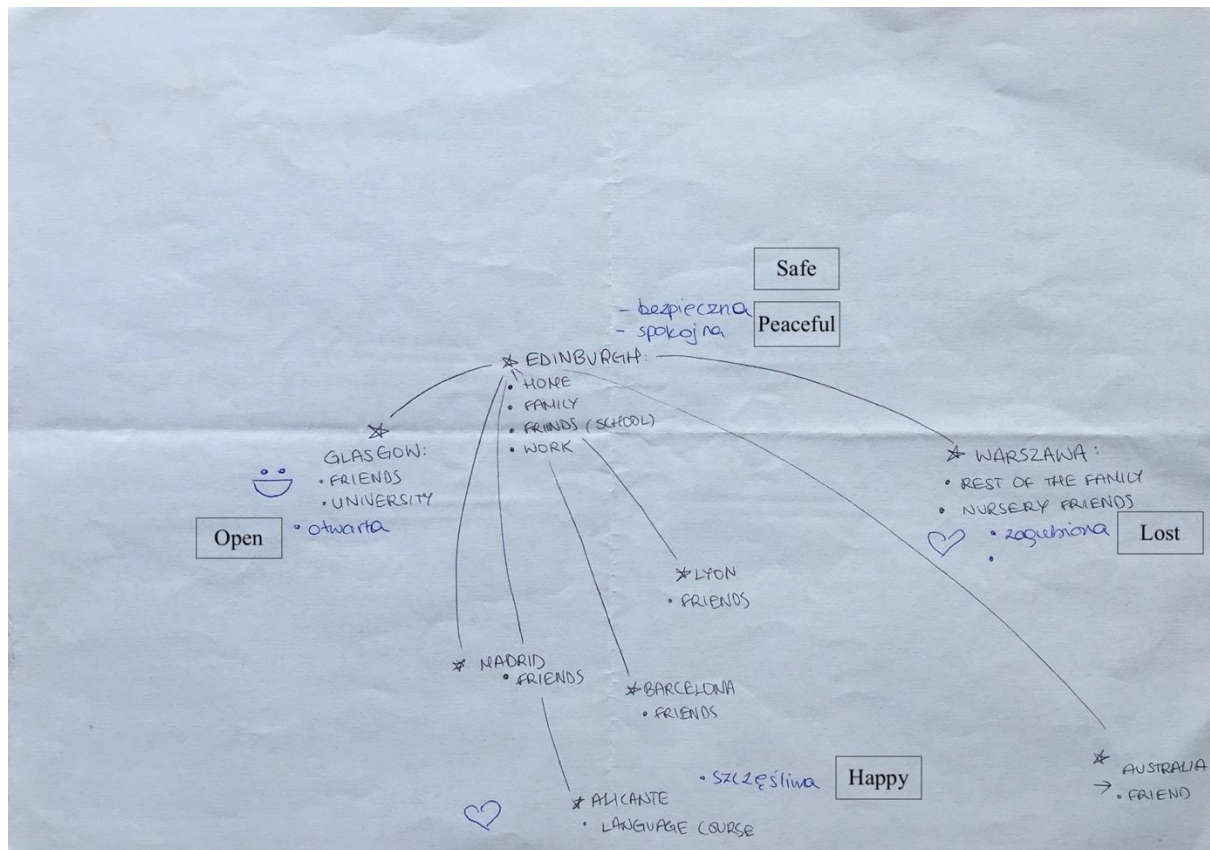 Safe
- bezpieczna
Peaceful
- spokojna
EDINBURGH:
• HOME
• FAMILY
• FRINDS (SCHOOL)
• WORK
GLASGOW:
• FRIENDS
• UNIVERSITY
• otwarta
Open
WARSZAWA:
• REST OF THE FAMILY
• NURSERY FRIENDS
• zagubiona
Lost
LYON
• FRIENDS
MADRID
• FRIENDS
BARCELONA
• FRIENDS
• szczęśliwa
Happy
ALICANTE
• LANGUAGE COURSE
AUSTRALIA
→ • FRIEND